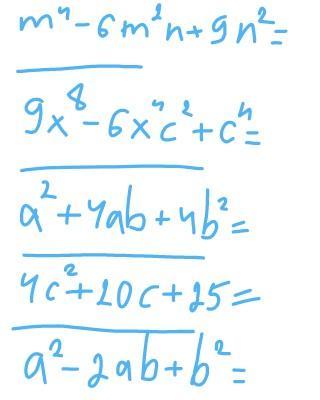 m⁴-6m²n+9n²=
9x⁸-6x⁴c²+c⁴=
a²+4ab+4b²=
4c²+20c+25=
a²-2ab+b²=